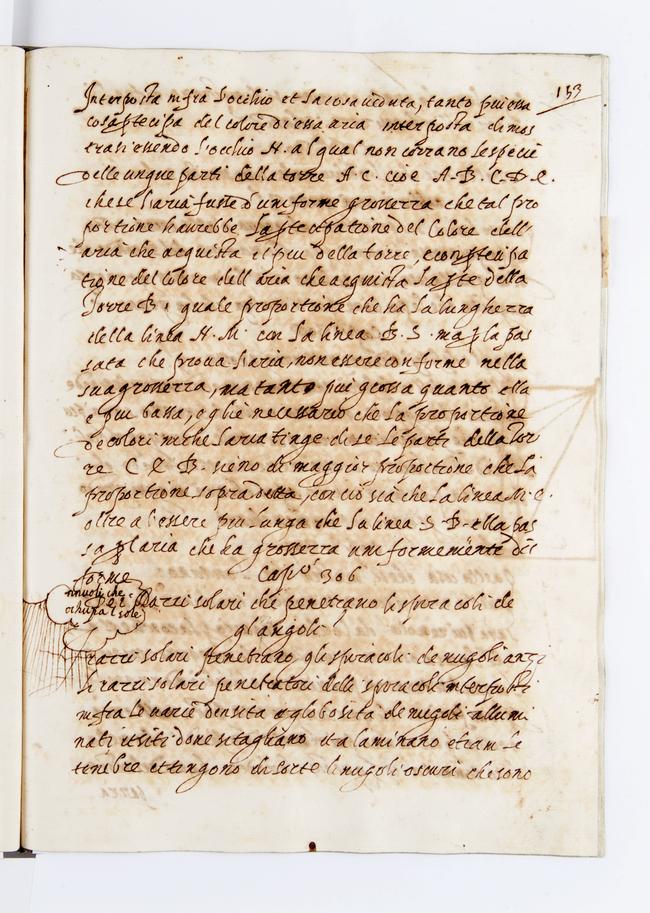 133
Interposta infrà l'occhio et la cosa veduta, tanto piu essa
cosa ptecipa del colore di essa aria interposta dimos
trasi essendo l'occhio N. al qual non corrano le specie
delle unque parti della torre A. C. cioè A. B. C. D. e.
che se l'aria fusse d'uniforme grosserra che tal pro
portione haurebbe la ptecipatione del Colore dell'
aria che acquista il piu della torre, e conptecipa
tione del colore dell'aria che acquista la pte della
Torre B. quale proportione che ha la lungherra
della linea N. M. con la linea B. S. ma p la pas
sata che prova l'aria, non essere conforme nella
sua grosserra, ma tanto piu grossa quanto ella
e piu bassa, eglie necessario che la proportione
de colori in che l'aria tinge di se le parti della tor
re C e B. sieno di maggior proportione che la
proportione sopradetta, con cio sia che la linea M. e.
oltre a l'essere piu lunga che la linea S B. ella pas
sa p l'aria che ha grosserra uniformemente dis
forme
Capo. 306
nnuoli che
ochupa l sole
De Rarri solari che penetrano li spiracoli de
gl angoli
I rarri solari penetrano gli spiracoli de nugoli anzi
li rarri solari penetratori delli spiracoli interposti
infra le varie densita e globosita de nugoli allumi
nati itsiti done si tagliano it alaminano etiam le
tenebre et tingono di sorte li nugoli oscuri che sono